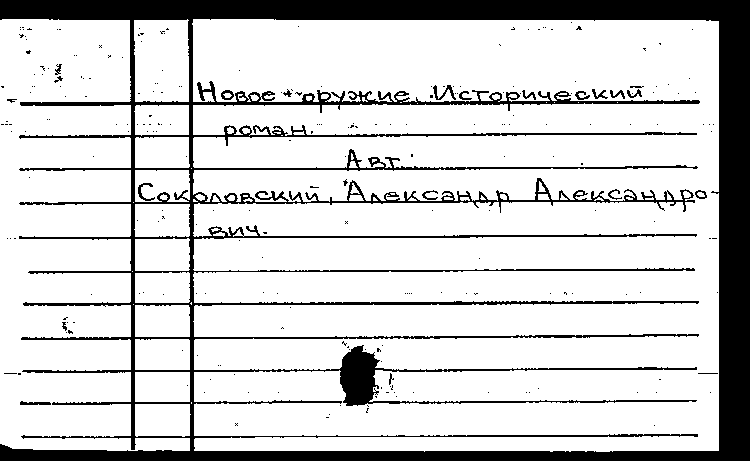 Новое оружие. Исторический
роман.
Авт.:
Соколовский, Александр Александро-
вич.